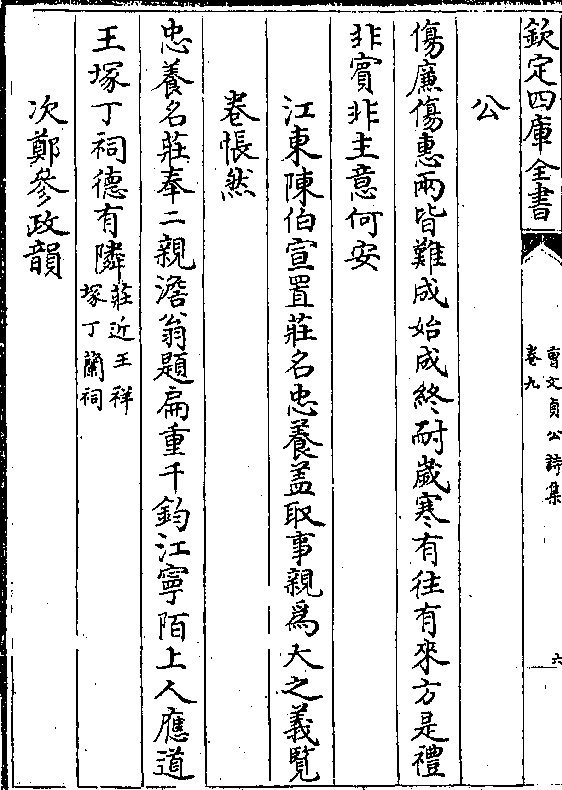 欽定四庫全書
曹文貞公詩集
卷九
六
公
傷廉傷惠兩皆難成始成終耐嵗寒有往有來方是禮
非賓非主意何安
江東陳伯宣置莊名忠養盖取事親爲大之義覧
卷悵然
忠養名莊奉二親澹翁題扁重千鈞江寧陌上人應道
王塚丁祠德有隣莊近王祥
塚丁蘭祠
次鄭參政韻